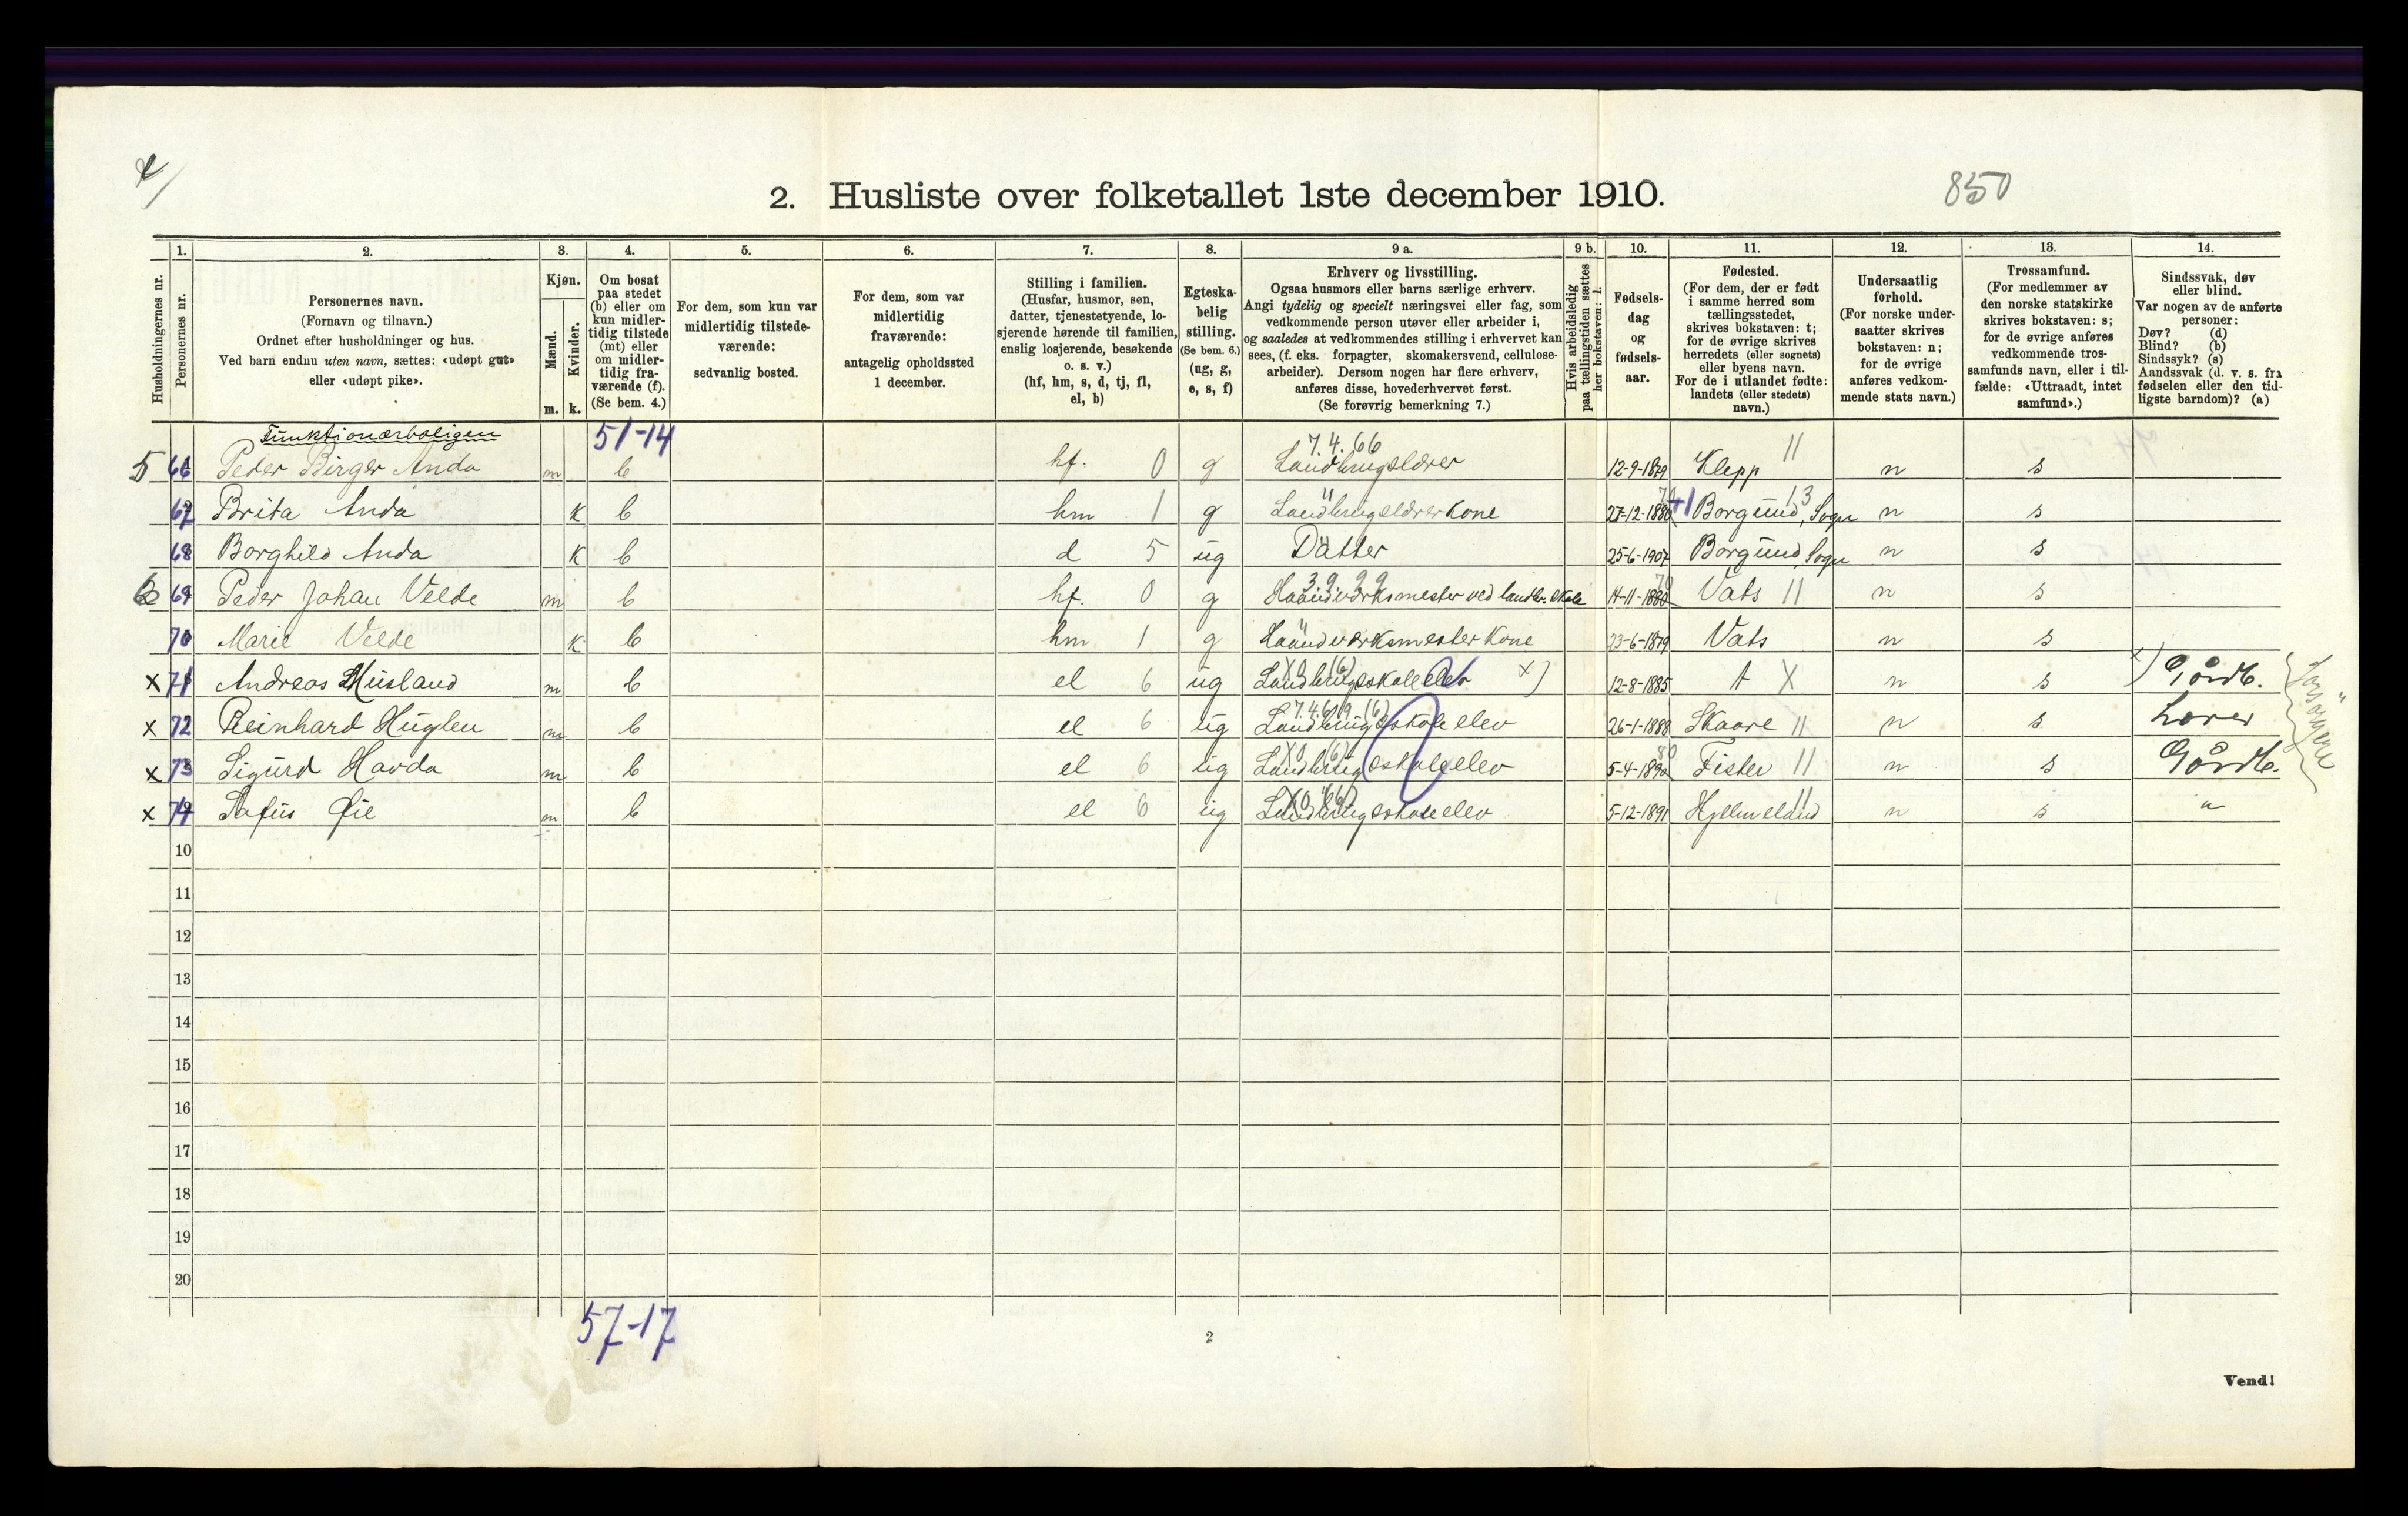 850
2. Husliste over folketallet 1ste december 1910.
Husholdningernes nr.
1.
Personernes nr.
2.
Personernes navn.
(Fornavn og tilnavn.)
Ordnet efter husholdninger og hus.
Ved barn endnu uten navn, sættes: «udøpt gut»
eller «udøpt pike».
3.
Kjøn.
Mænd.
Kvinder.
m. k.
4.
Om bosat
paa stedet
(b) eller om
kun midler-
tidig tilstede
(mt) eller
om midler-
tidig fra-
værende (f).
(Se bem. 4.)
5.
For dem, som kun var
midlertidig tilstede-
værende:
sedvanlig bosted.
6.
For dem, som var
midlertidig
fraværende:
antagelig opholdssted
1 december.
7.
Stilling i familien.
(Husfar, husmor, søn,
datter, tjenestetyende, lo-
sjerende hørende til familien,
enslig losjerende, besøkende
o. s. v.)
(hf, hm, s, d, tj, fl,
el, b)
8.
Egteska-
belig
stilling.
(Se bem. 6.)
(ug, g,
e, s, f)
9 a.
Erhverv og livsstilling.
Ogsaa husmors eller barns særlige erhverv.
Angi tydelig og specielt næringsvei eller fag, som
vedkommende person utøver eller arbeider i,
og saaledes at vedkommendes stilling i erhvervet kan
sees, (f. eks. forpagter, skomakersvend, cellulose-
arbeider). Dersom nogen har flere erhverv,
anføres disse, hovederhvervet først.
(Se forøvrig bemerkning 7.)
9 b.
Hvis arbeidsledig
paa tællingstiden sættes
her bokstaven: l.
10.
Fødsels-
dag
og
fødsels-
aar.
11.
Fødested.
(For dem, der er født
i samme herred som
tællingsstedet,
skrives bokstaven: t;
for de øvrige skrives
herredets (eller sognets)
eller byens navn.
For de i utlandet fødte:
landets (eller stedets)
navn.)
12.
Undersaatlig
forhold.
(For norske under-
saatter skrives
bokstaven: n;
for de øvrige
anføres vedkom-
mende stats navn.)
13.
Trossamfund.
(For medlemmer av
den norske statskirke
skrives bokstaven: s;
for de øvrige anføres
vedkommende tros-
samfunds navn, eller i til-
fælde: «Uttraadt, intet
samfund».)
14.
Sindssvak, døv
eller blind.
Var nogen av de anførte
personer:
Døv? (d)
Blind? (b)
Sindssyk? (s)
Aandssvak (d. v. s. fra
fødselen eller den tid-
ligste barndom)? (a)
Funktionærboligen 51-14 7.4.66
5 66 Peder Birger Anda m b hf. 0 g Landbrugslærer 12-9-1879 Klepp 11 n s
67 Brita Anda k b hm 1 g Landbrugslærerkone 27-12-1880 +1 Borgund, Sogn 13 n s
68 Borghild Anda k b d 5 ug Datter 25-6-1907 Borgund, Sogn n s
6 69 Peder Johan Velde m b hf. 0 g Haandverksmester ved landbr. skole 14-11-1880 Vats 11 n s
70 Marie Velde k b hm 1 g Haandverksmester kone 23-6-1879 Vats n s
x 71 Andreas Husland m b el 6 ug Landbrugsskoleelev x) 12-8-1885 t X n s x) Gårdb.
x 72 Reinhard Huglen m b el 6 ug Landbrugsskoleelev 26-1-1888 Skaare 11 n s Lærer
x 73 Sigurd Havda m b el 6 ug Landbrugsskoleelev 5-4-1890 Fister 11 n s Gårdb.
x 74 Søfus Øie m b el 6 ug Landbrugsskoleelev 5-12-1891 Hjelmeland 11 n s "
Forsørgere
10
11
12
13
14
15
16
17
18
19
20
57-17
2
Vend!